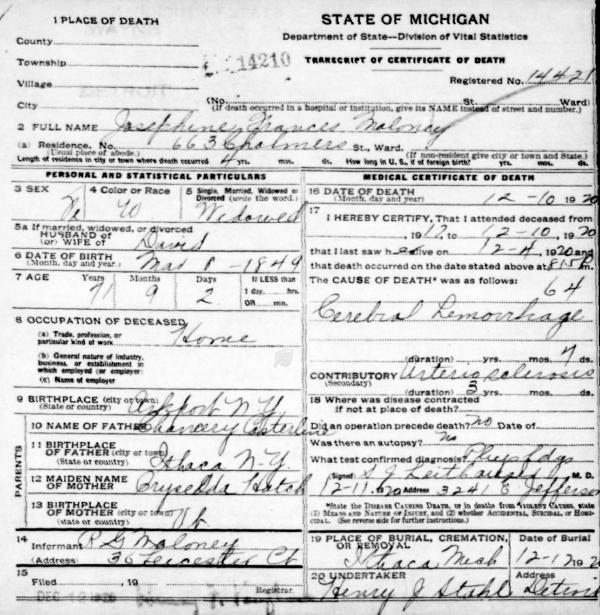 1 PLACE OF DEATH
STATE OF MICHIGAN
Department of State—Division of Vital Statistics
TRANSCRIPT OF CERTIFICATE OF DEATH
County
Township
14210
Registered No. 14421
Village
City
(No. St. Ward)
(If death occurred in a hospital or institution, give its NAME instead of street and number.)
2 FULL NAME Josephine Frances Maloney
(a) Residence. No. 663 Chalmers St., Ward.
(Usual place of abode.) (If non-resident give city or town and State)
Length of residence in city or town where death occurred 4 yrs. mos. ds. How long in U. S., if of foreign birth? yrs. mos. ds.
PERSONAL AND STATISTICAL PARTICULARS
3 SEX Fe
4 Color or Race W
5 Single, Married, Widowed or Divorced (write the word.) Widowed
5a If married, widowed, or divorced
HUSBAND of
(or) WIFE of David
6 DATE OF BIRTH
(Month, day and year.) Mar 8 - 1849
7 AGE Years Months Days If LESS than
71 9 2 1 day. hrs.
OR min.
8 OCCUPATION OF DECEASED
(a) Trade, profession, or
particular kind of work Home
(b) General nature of industry,
business, or establishment in
which employed (or employer)
(c) Name of employer
9 BIRTHPLACE (city or town) Arkport N.Y.
(State or country)
PARENTS
10 NAME OF FATHER Chancery
11 BIRTHPLACE
OF FATHER (city or town) Ithaca N-Y.
(State or country)
12 MAIDEN NAME
OF MOTHER Hatch
13 BIRTHPLACE
OF MOTHER (city or town) Vt
(State or country)
14
Informant R G Maloney
Address 36 Leicester Ct
15
Filed , 19
Registrar.
MEDICAL CERTIFICATE OF DEATH
16 DATE OF DEATH
(Month, day and year) 12-10 1920
17
I HEREBY CERTIFY, That I attended deceased from
, 1917, to 12-10, 1920
that I last saw h er alive on 12-4, 1920 and
that death occurred on the date stated above at 815 m
The CAUSE OF DEATH* was as follows:
64
Cerebral Hemorrhage
(duration) yrs. mos. 7 ds.
CONTRIBUTORY Arteriosclerosis
(Secondary) (duration) 3 yrs. mos. ds.
18 Where was disease contracted
if not at place of death?
Did an operation precede death? no Date of
Was there an autopsy? no
What test confirmed diagnosis?
(Signed) M. D.
12-11, 20 Address 3241 E Jefferson
*State the DISEASE CAUSING DEATH, or in deaths from VIOLENT CAUSES, state
(1) MEANS AND NATURE OF INJURY, and (2) whether ACCIDENTAL, SUICIDAL, or HOMI-
CIDAL. (See reverse side for further instructions.)
19 PLACE OF BURIAL, CREMATION,
OR REMOVAL Date of Burial
Ithaca Mich 12-12 1920
20 UNDERTAKER Address
Henry J Stahl Detroit